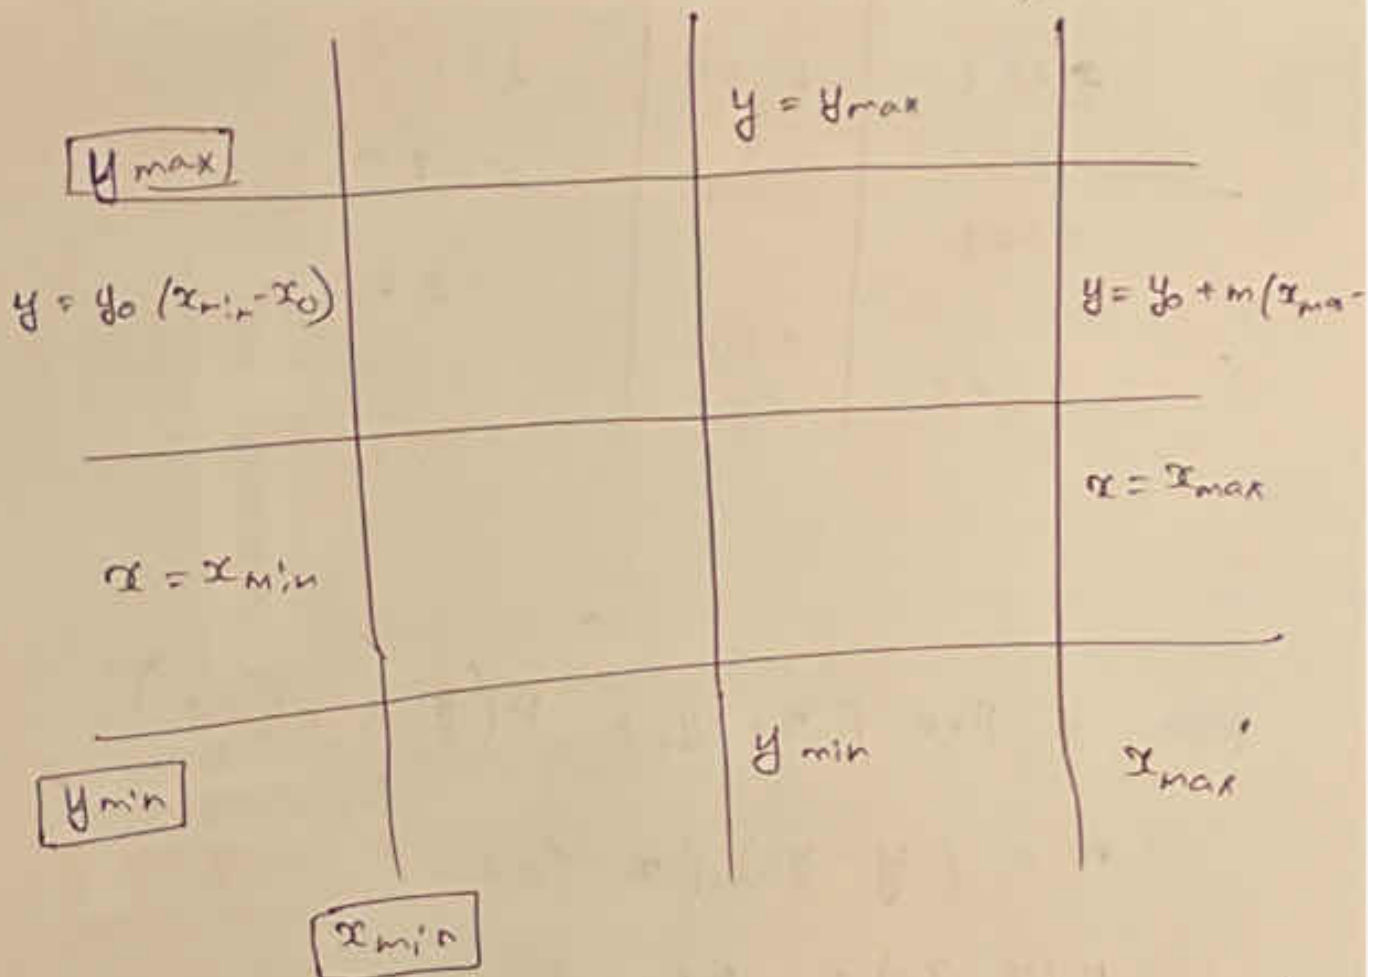 y = ymax
ymax
y = y0 (xmin - x0)
y = y0 + m(xma-
x = xmax
x = xmin
ymin
xmax
ymin
xmin